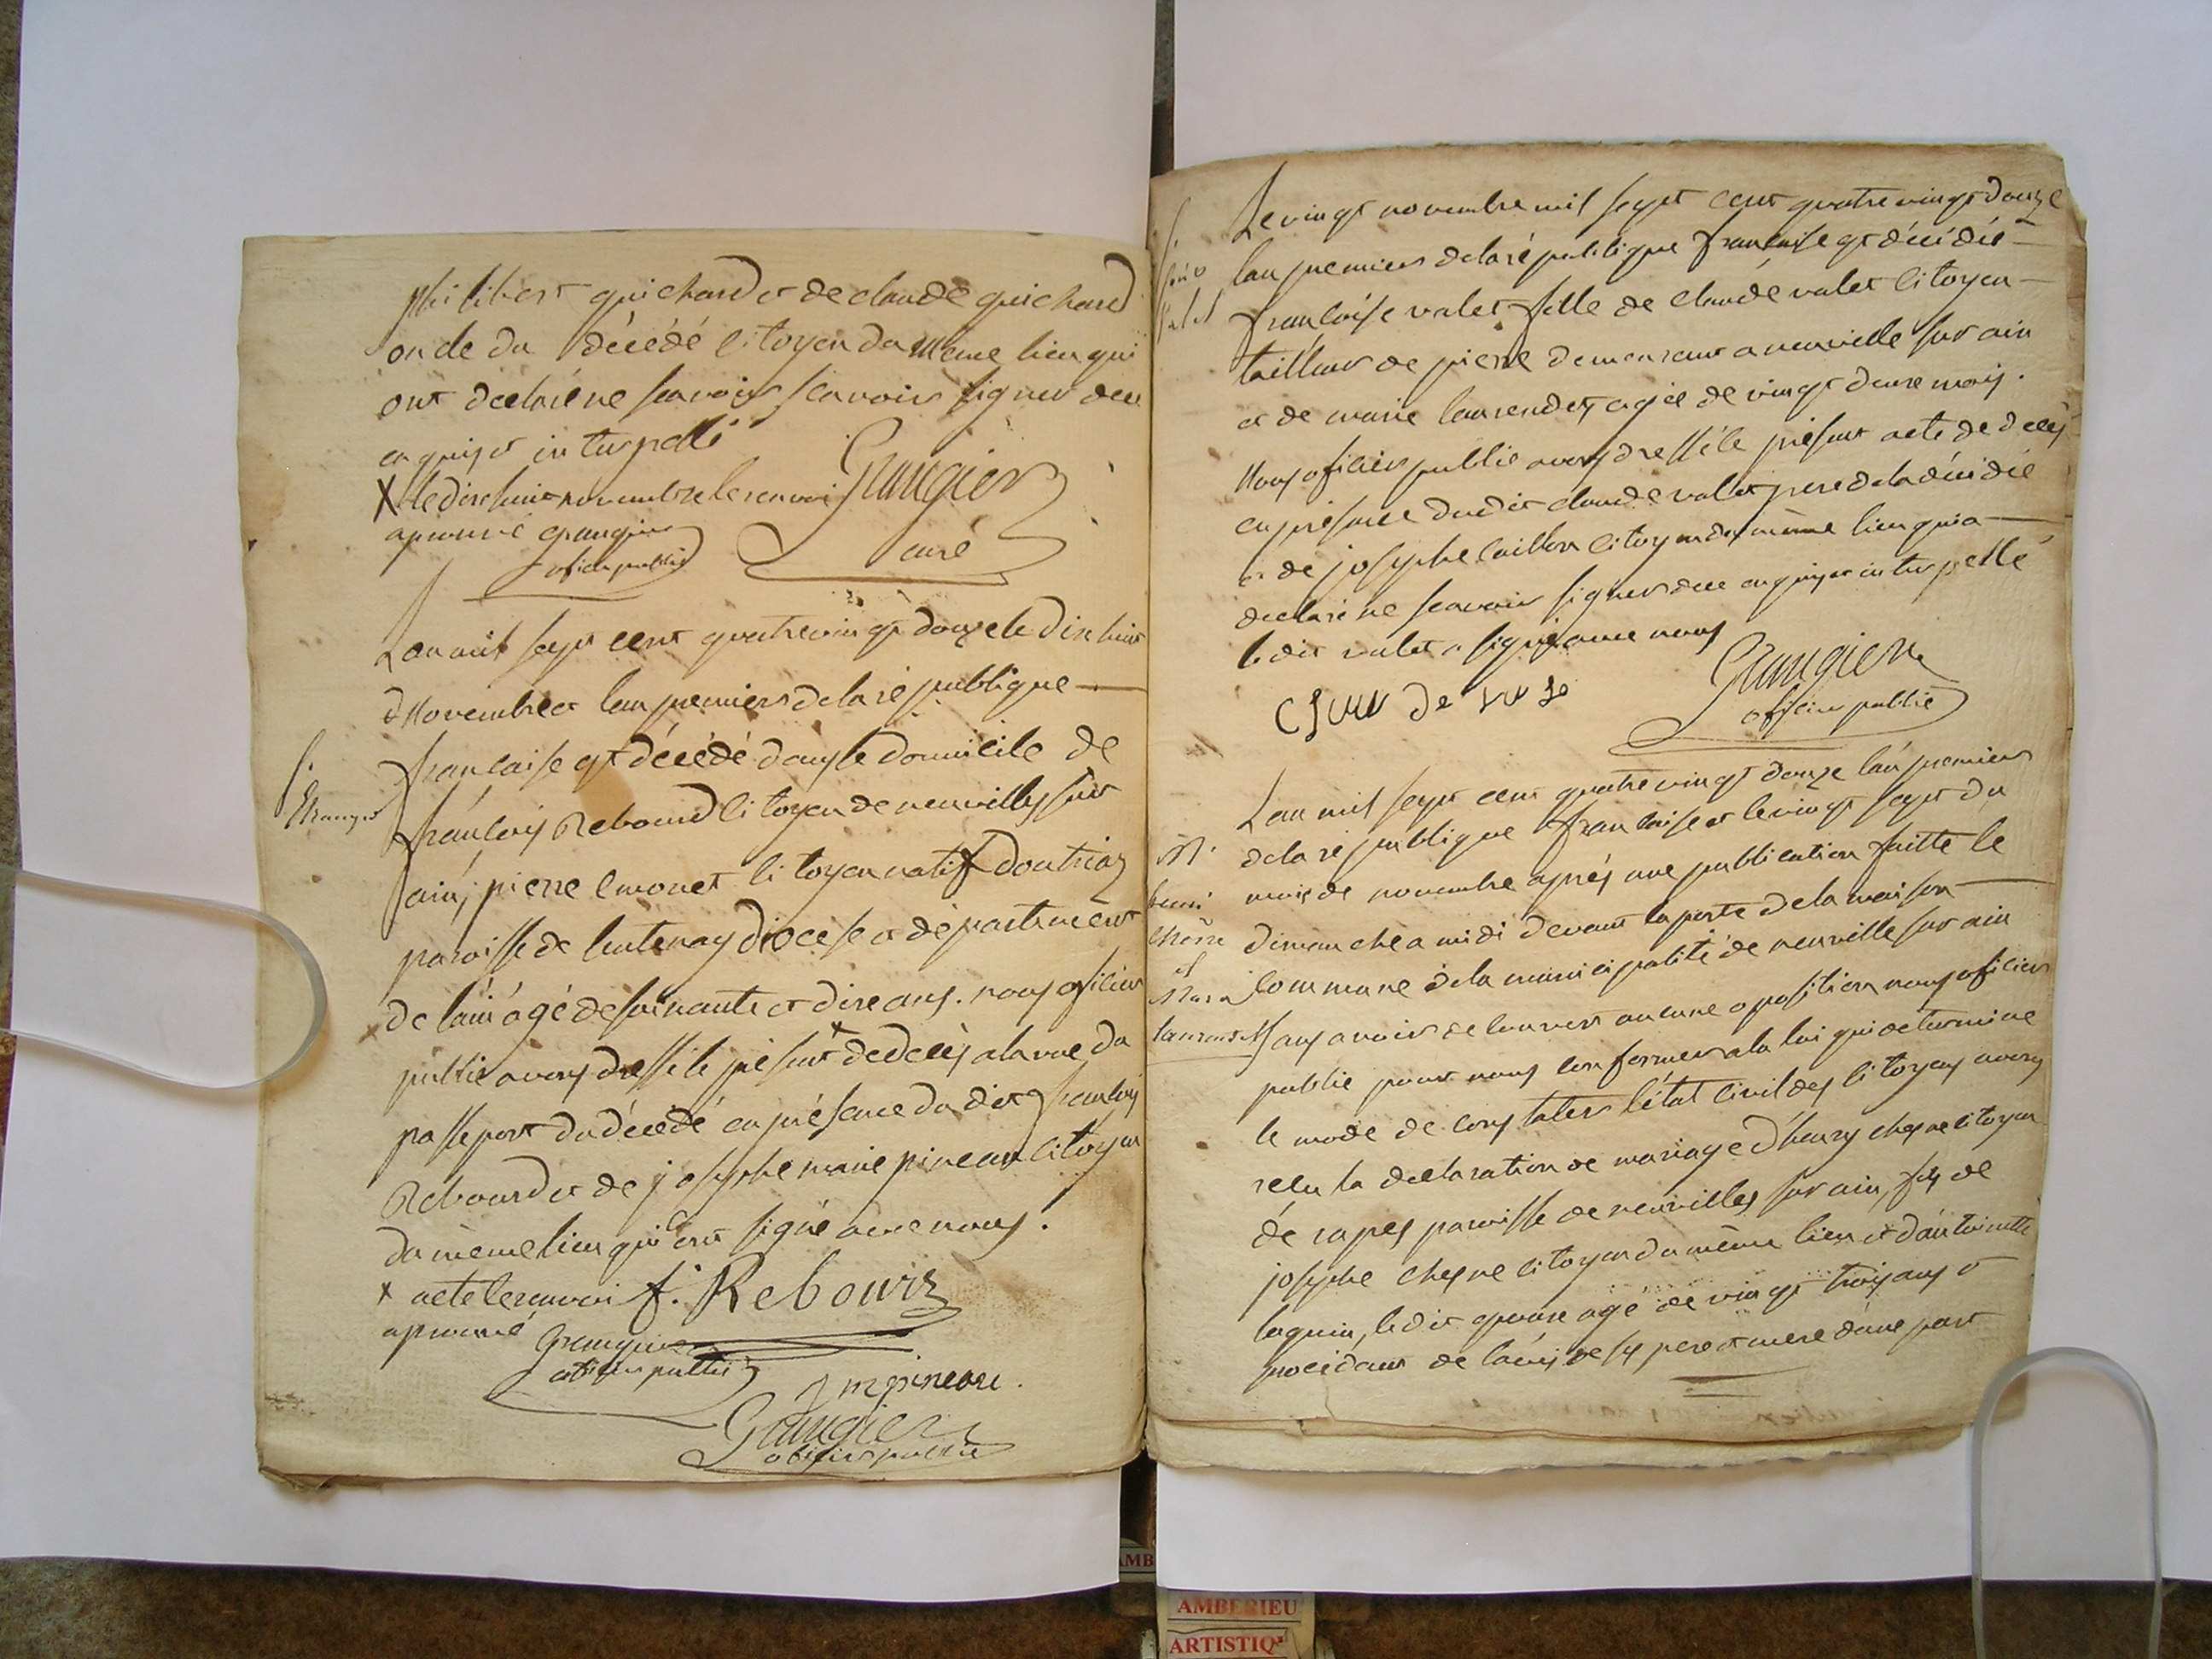 philibert guichard et de claude guichard
oncle du décédé citoyen du meme lieu qui
ont declaré ne scavoir signer de ce
enquis et interpellé
X le dix huit novembre le renvoi Grangier
aprouvé Grangier curé
oficier public
L'an mil sept cent quatre vingt douze le dix huit
novembre et l'an premier de la république
S. française est décédé dans le domicile de
Etranger françois Rebourd citoyen de neuville sur
ain, pierre emonet citoyen natif d'outriaz
paroisse de lentenay diocese et département
de l'ain agé de soixante et dix ans. nous oficier
public avons dressé le présent x de decès a la vue du
passeport du décédé en présence du dit françois
Rebourd et de josephe marie pineau citoyen
du même lieu qui ont signé avec nous.
x acte le renvoi f. Rebours
aprouvé Grangier
oficier public
J m pineau
Grangier
oficier public
Le vingt novembre mil sept cent quatre vingt douze
l'an premier de la république française est décédée
françoise valet fille de claude valet citoyen
tailleur de pierre demeurant a neuville sur ain
et de marie laurendet agée de vingt deux mois.
Nous oficier public avons dressé le présent acte de decès
en présence dudit claude valet pere de la décédée
et de josephe caillon citoyen du même lieu qui a
declaré ne scavoir signer de ce enquis et interpellé
le dit valet a signé avec nous
Grangier
oficier public
L'an mil sept cent quatre vingt douze l'an premier
M. de la république française et le vingt sept du
henri mois de novembre après une publication faitte le
chêne dimanche a midi devant la porte de la maison
et commune de la municipalité de neuville sur ain
laurendet sans avoir decouvert aucune oposition nous oficier
public pour nous conformer a la loi qui determine
le mode de constater l'état civil des citoyens avons
recu la declaration de mariage d'henry chesne citoyen
de rapes paroisse de neuville sur ain, fils de
josephe chesne citoyen du même lieu et d'antoinette
le dit epoux agé de vingt trois ans et
procédant de l'avis de ses pere et mere d'une part
AMBERIEU
ARTISTIQ